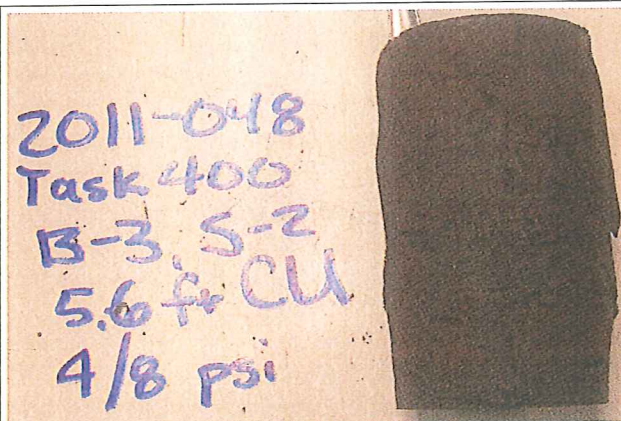 2011-048
Task 400
B-3, S-2
5.6 ft CU
4/8 psi